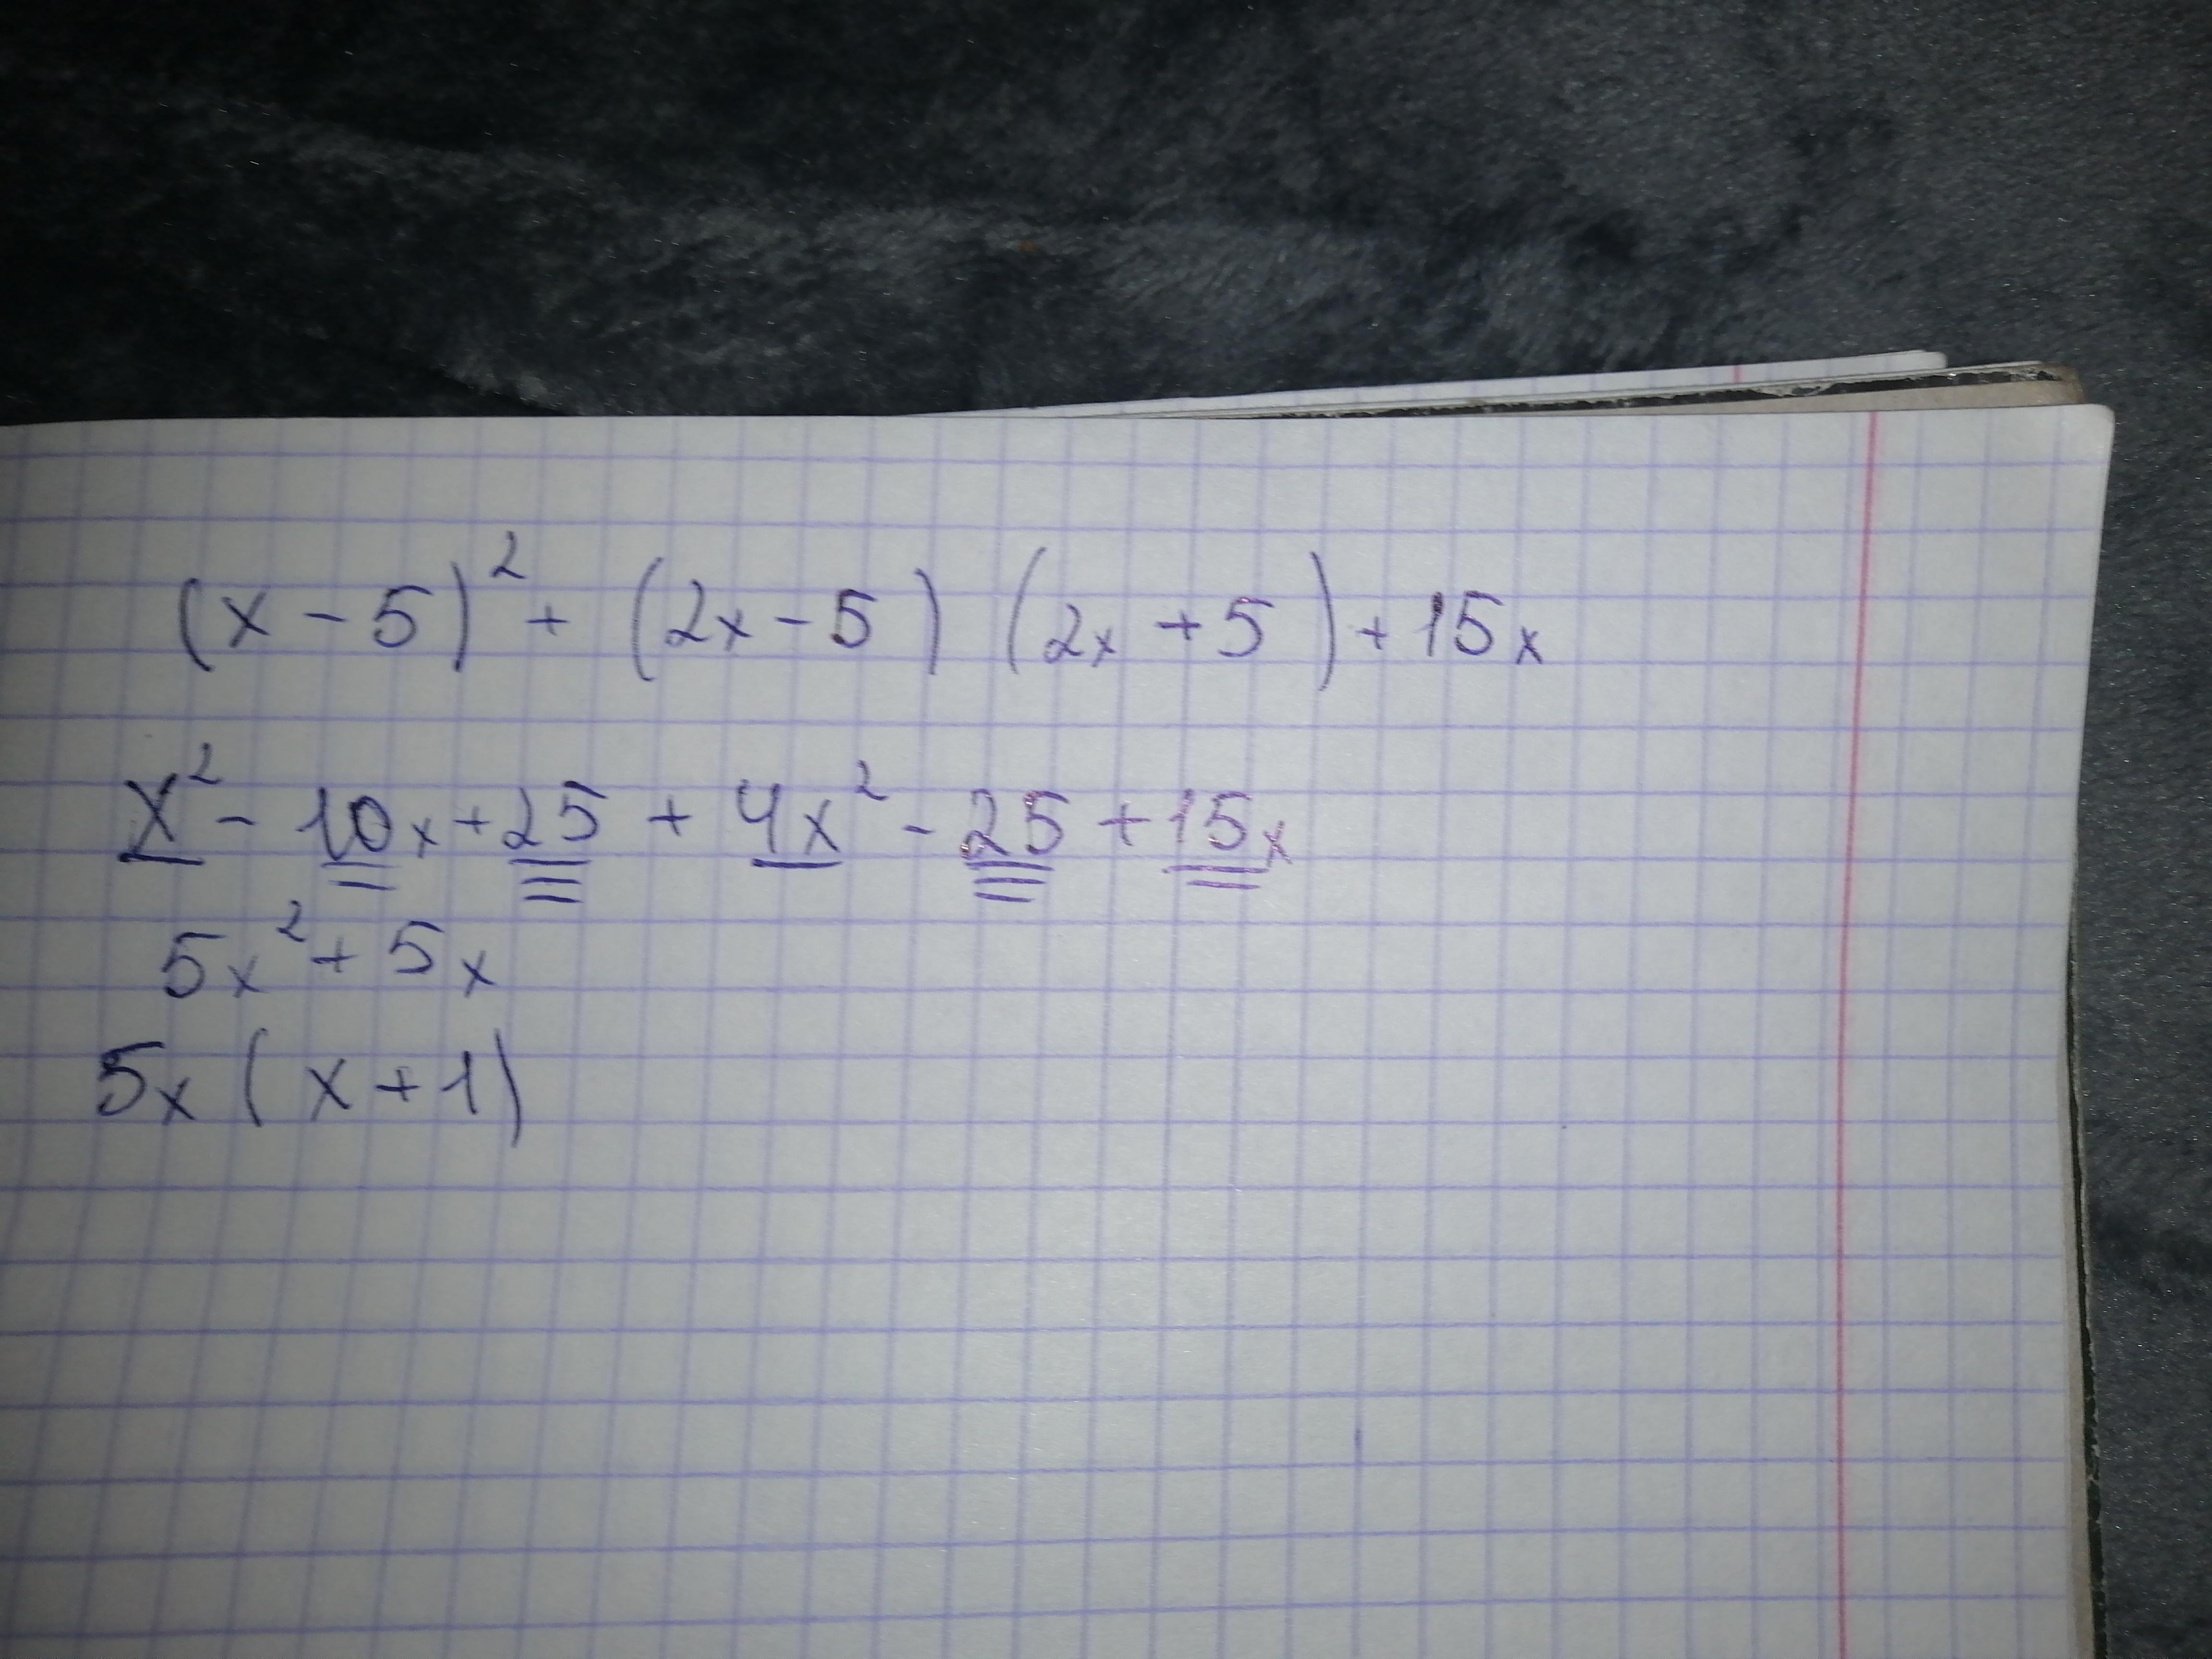 (x - 5)² + (2x - 5) (2x + 5) + 15x
x² - 10x + 25 + 4x² - 25 + 15x
5x² + 5x
5x (x + 1)